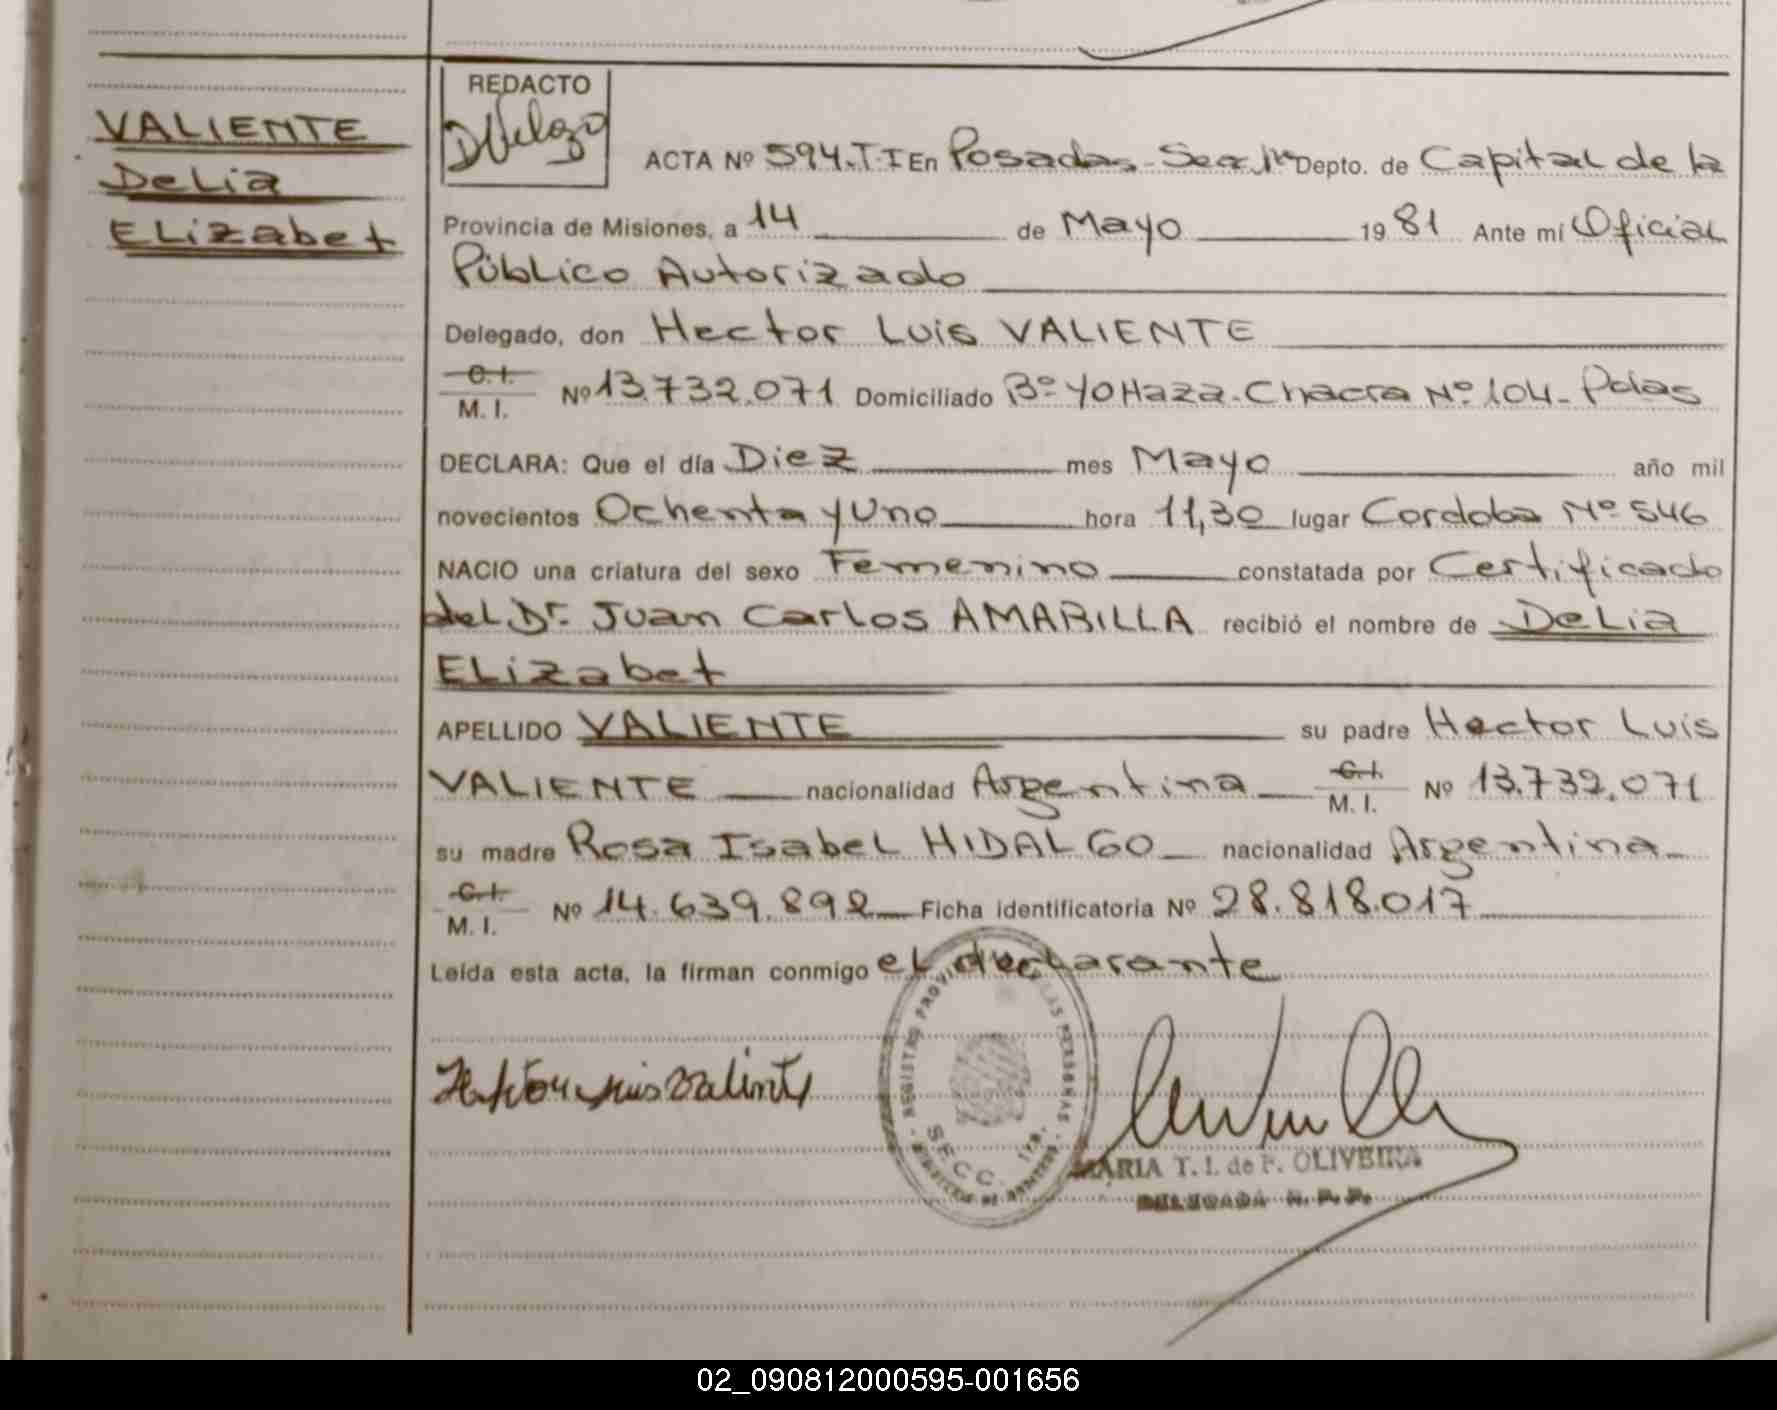 VALIENTE
Delia
Elizabet
REDACTO
DVelozo
ACTA Nº 594.T.I En Posadas - Secc. 1ra Depto. de Capital de la
Provincia de Misiones, a 14 de Mayo 1981 Ante mí Oficial
Público Autorizado
Delegado, don Hector Luis VALIENTE
C.I. / M. I. Nº 13.732.071 Domiciliado Bº YOHAZA - Chacra Nº 104 - Pdas
DECLARA: Que el día Diez mes Mayo año mil
novecientos Ochenta y Uno hora 11,30 lugar Cordoba Nº 546
NACIO una criatura del sexo Femenino constatada por Certificado
del Dr. Juan Carlos AMARILLA recibió el nombre de Delia
Elizabet
APELLIDO VALIENTE su padre Hector Luis
VALIENTE nacionalidad Argentina C.I. / M. I. Nº 13.732.071
su madre Rosa Isabel HIDALGO nacionalidad Argentina
C.I. / M. I. Nº 14.639.892 Ficha identificatoria Nº 28.818.017
Leída esta acta, la firman conmigo el declarante
Hector Luis Valiente
REGISTRO PROVINCIAL DE LAS PERSONAS
SECC. 1ra.
MARIA T. I. de F. OLIVEIRA
DELEGADA R. P. P.
02_090812000595-001656